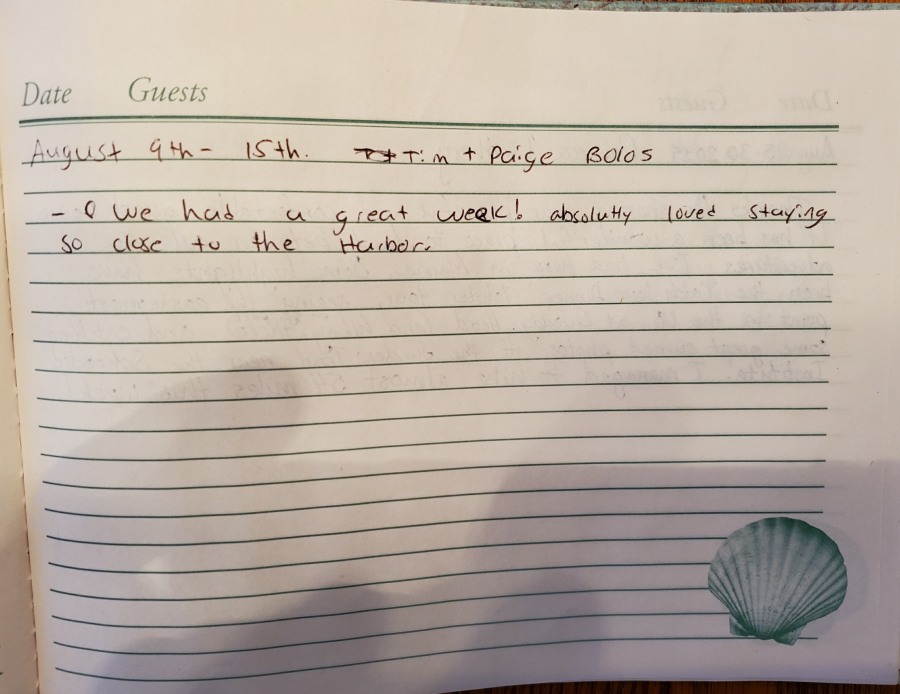 Date Guests
August 9th - 15th. Tim + Paige Bolos
- We had a great week! absolutly loved staying
so close to the Harbor.